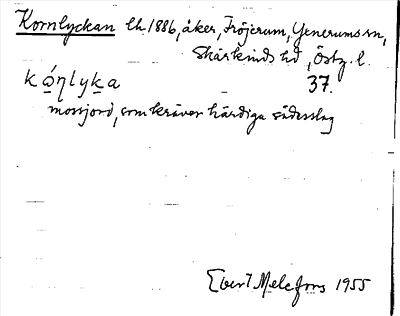 Kornlyckan lh. 1886, åker, Fröjerum, Yxnerums sn,
Skärkinds hd, Östg. l.
kó̲ηlyk̲a 37.
mossjord, som kräver härdiga sädesslag
Ebert Melefors 1955